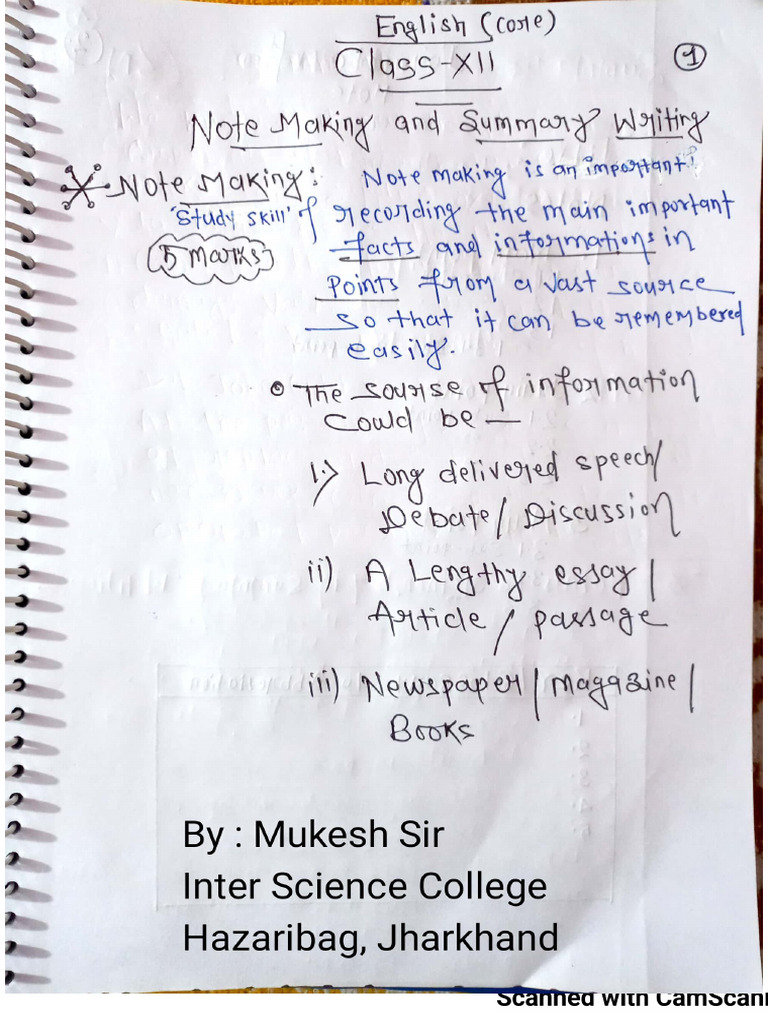 English (core)
Class-XII
1
Note Making and Summary Writing
Note Making: Note making is an important
'Study skill' of recording the main important
5 marks facts and informations in
points from a vast source
so that it can be remembered
easily.
The sourse of information
could be —
i.) Long delivered speech/
Debate/ Discussion
ii) A Lengthy essay /
Article / passage
iii) Newspaper / Magazine /
Books
By : Mukesh Sir
Inter Science College
Hazaribag, Jharkhand
Scanned with CamScan